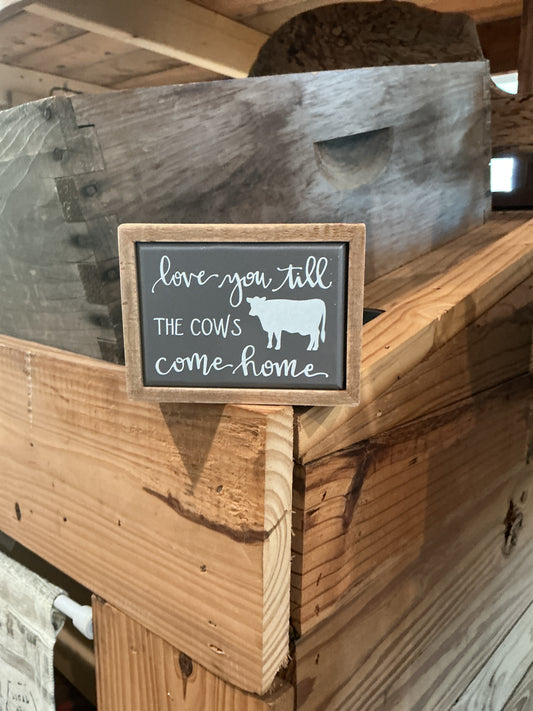 love you till
THE COWS
come home